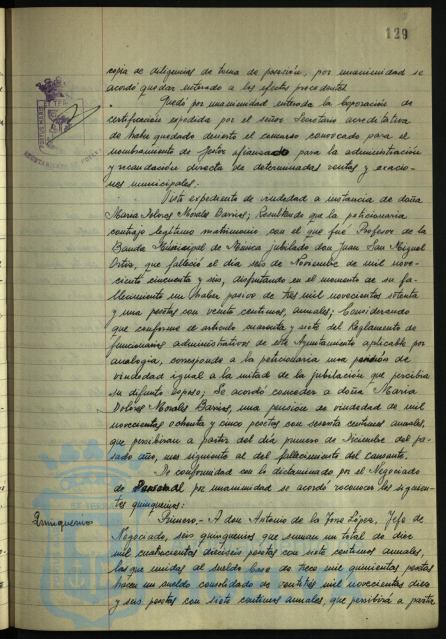 129
copia de diligencias de toma de posesión, por unanimidad se
acordó quedar enterado a los efectos procedentes.
Quedó por unanimidad enterada la Corporación de
certificación expedida por el señor Secretario acreditativa
de haber quedado desierto el concurso convocado para el
nombramiento de Gestor afianzado para la administración
y recaudación directa de determinadas rentas y exaccio-
nes municipales.
Visto expediente de viudedad a instancia de doña
María Dolores Morales Barrios; Resultando que la peticionaria
contrajo legítimo matrimonio con el que fué Profesor de la
Banda Municipal de Música jubilado don Juan San Miguel
Ortiz, que falleció el día seis de Noviembre de mil nove-
cientos cincuenta y seis, disfrutando en el momento de su fa-
llecimiento un haber pasivo de tres mil novecientas setenta
y una pesetas con veinte centimos, anuales; Considerando
que conforme al articulo cuarenta y siete del Reglamento de
funcionarios administrativos de este Ayuntamiento aplicable por
analogía, corresponde a la peticionaria una pensión de
viudedad igual a la mitad de la jubilación que percibia
su difunto esposo; Se acordó conceder a doña María
Dolores Morales Barrios, una pensión de viudedad de mil
novecientas ochenta y cinco pesetas con sesenta centimos anuales,
que percibiran a partir del día primero de Diciembre del pa-
sado año, mes siguiente al del fallecimiento del causante.
De conformidad con lo dictaminado por el Negociado
de Personal por unanimidad se acordó reconocer los siguien-
tes quinquenios:
Quinquenios
Primero.- A don Antonio de la Torre López, Jefe de
Negociado, seis quinquenios que suman un total de diez
mil cuatrocientas dieciseis pesetas con siete centimos anuales,
las que unidas al sueldo base de trece mil quinientas pesetas
hacen un sueldo consolidado de veintitres mil novecientas diez
y seis pesetas con siete centimos anuales, que percibirá a partir